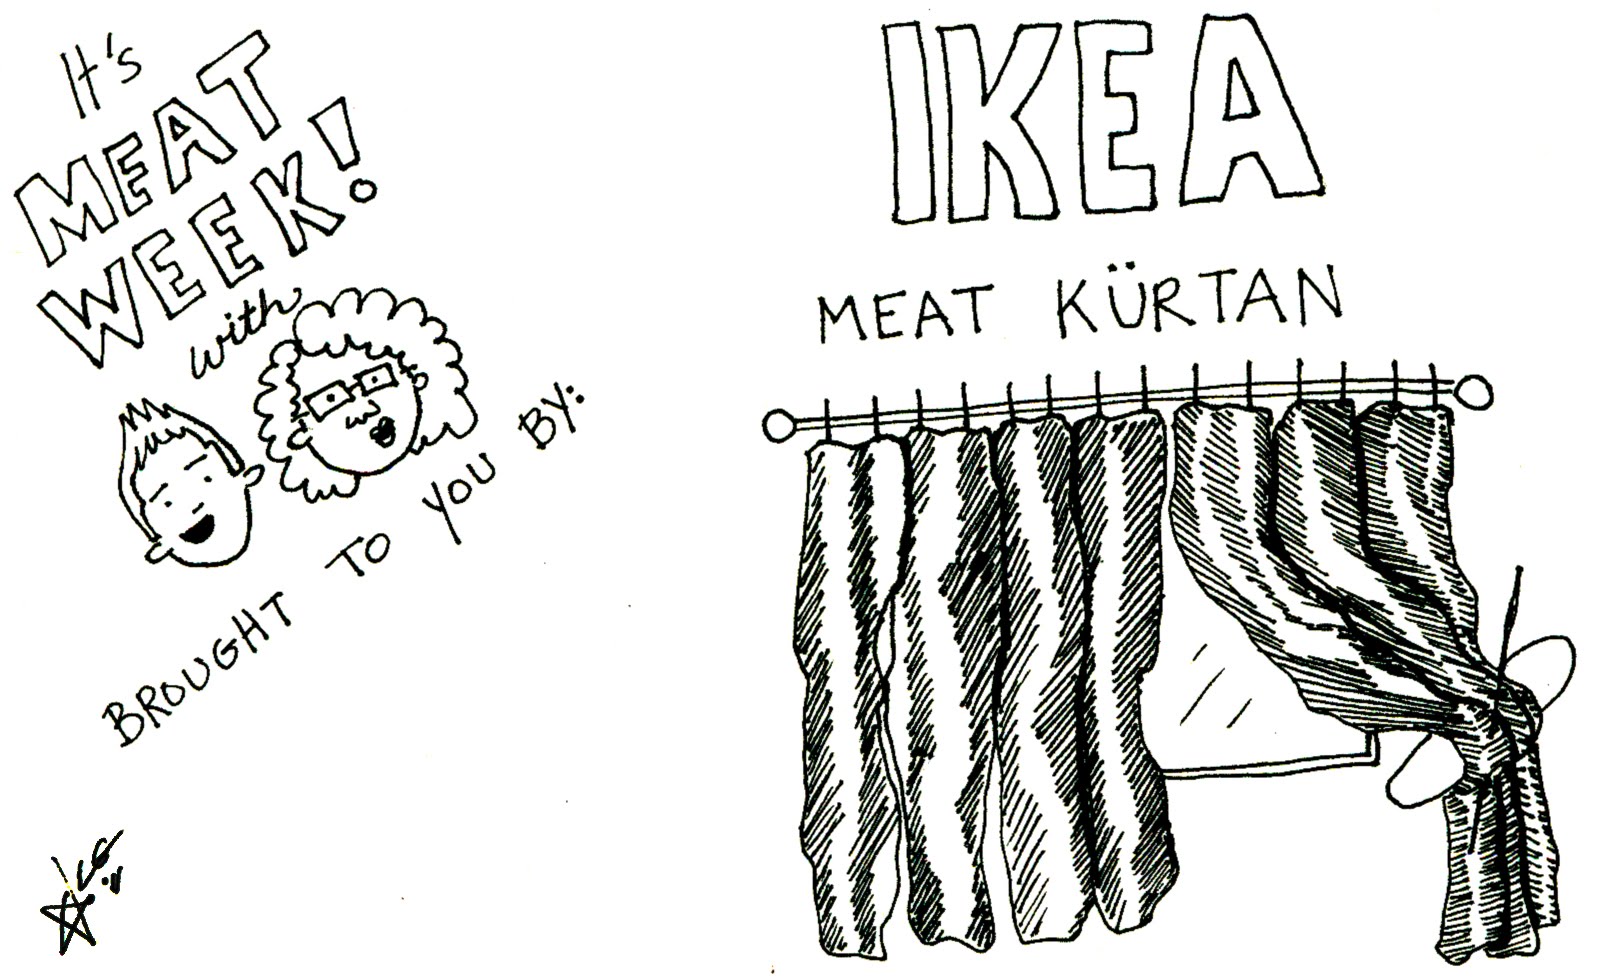 It's
MEAT
WEEK!
with
BROUGHT TO YOU BY:
IKEA
MEAT KÜRTAN